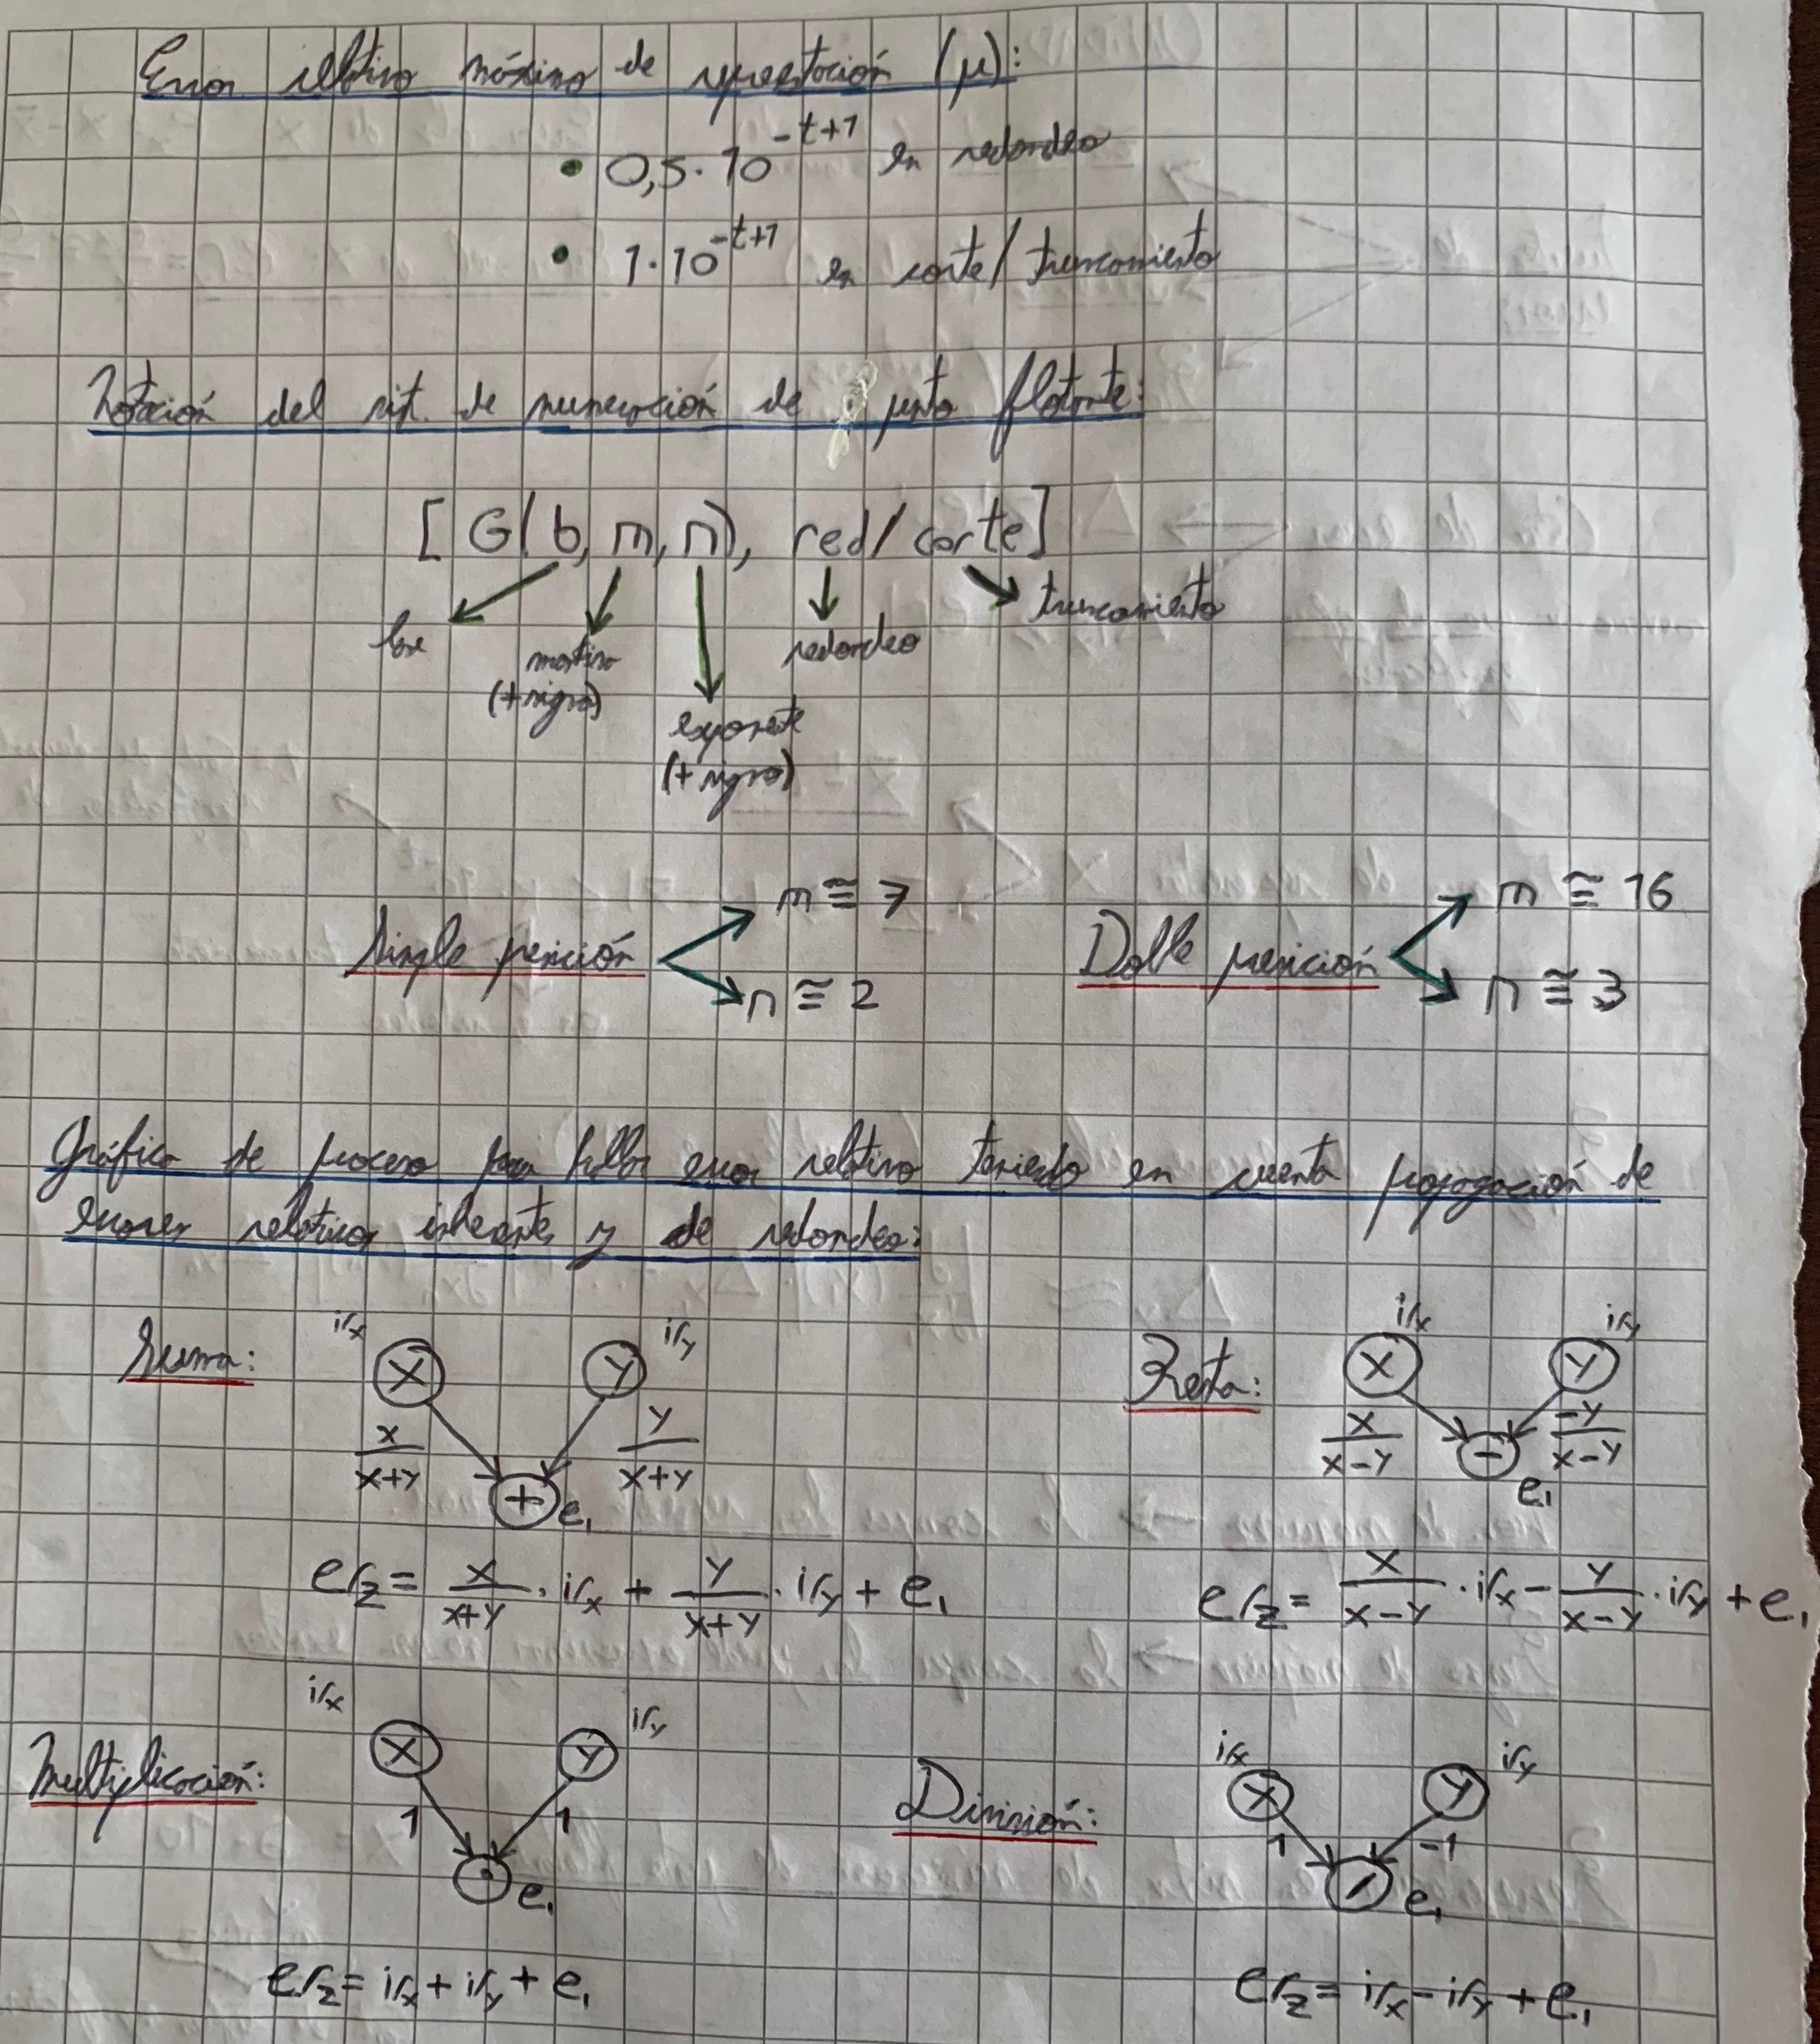 Error relativo máximo de representación (μ):
• 0,5·10^{-t+1} en redondeo
• 1·10^{-t+1} en corte/truncamiento
Notación del sist. de numeración de punto flotante:
[G(b, m, n), red/corte]
base
mantisa
(+signo)
exponente
(+signo)
redondeo
truncamiento
Simple precisión
m ≅ 7
n ≅ 2
Doble precisión
m ≅ 16
n ≅ 3
Gráfica de proceso para hallar error relativo teniendo en cuenta propagación de
errores relativos inherentes y de redondeo:
Suma:
ir_x
ir_y
X
Y
x/(x+y)
y/(x+y)
+
e₁
er_z = x/(x+y) · ir_x + y/(x+y) · ir_y + e₁
Resta:
ir_x
ir_y
X
Y
x/(x-y)
-y/(x-y)
-
e₁
er_z = x/(x-y) · ir_x - y/(x-y) · ir_y + e₁
Multiplicación:
ir_x
ir_y
X
Y
1
1
·
e₁
er_z = ir_x + ir_y + e₁
División:
ir_x
ir_y
X
Y
1
-1
/
e₁
er_z = ir_x - ir_y + e₁